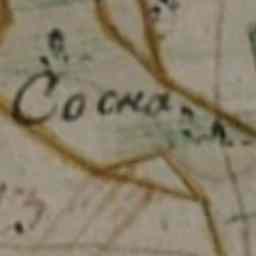 Сосна